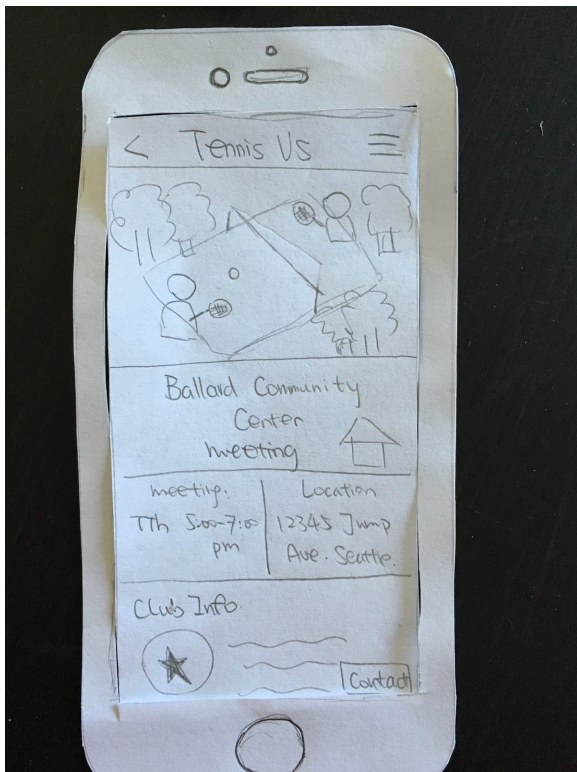 < Tennis Us
Ballard Community
Center
meeting
meeting:
TTh 5:00-7:00
pm
Location
12345 Jump
Ave. Seattle.
Club Info.
Contact